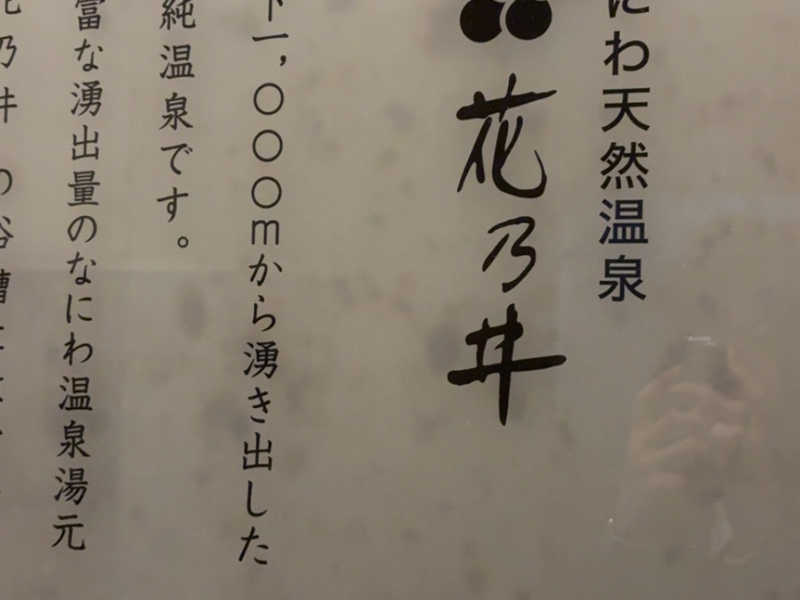 にわ天然温泉
花乃井
下一,〇〇〇mから湧き出した
純温泉です。
富な湧出量のなにわ温泉湯元
花乃井の浴槽